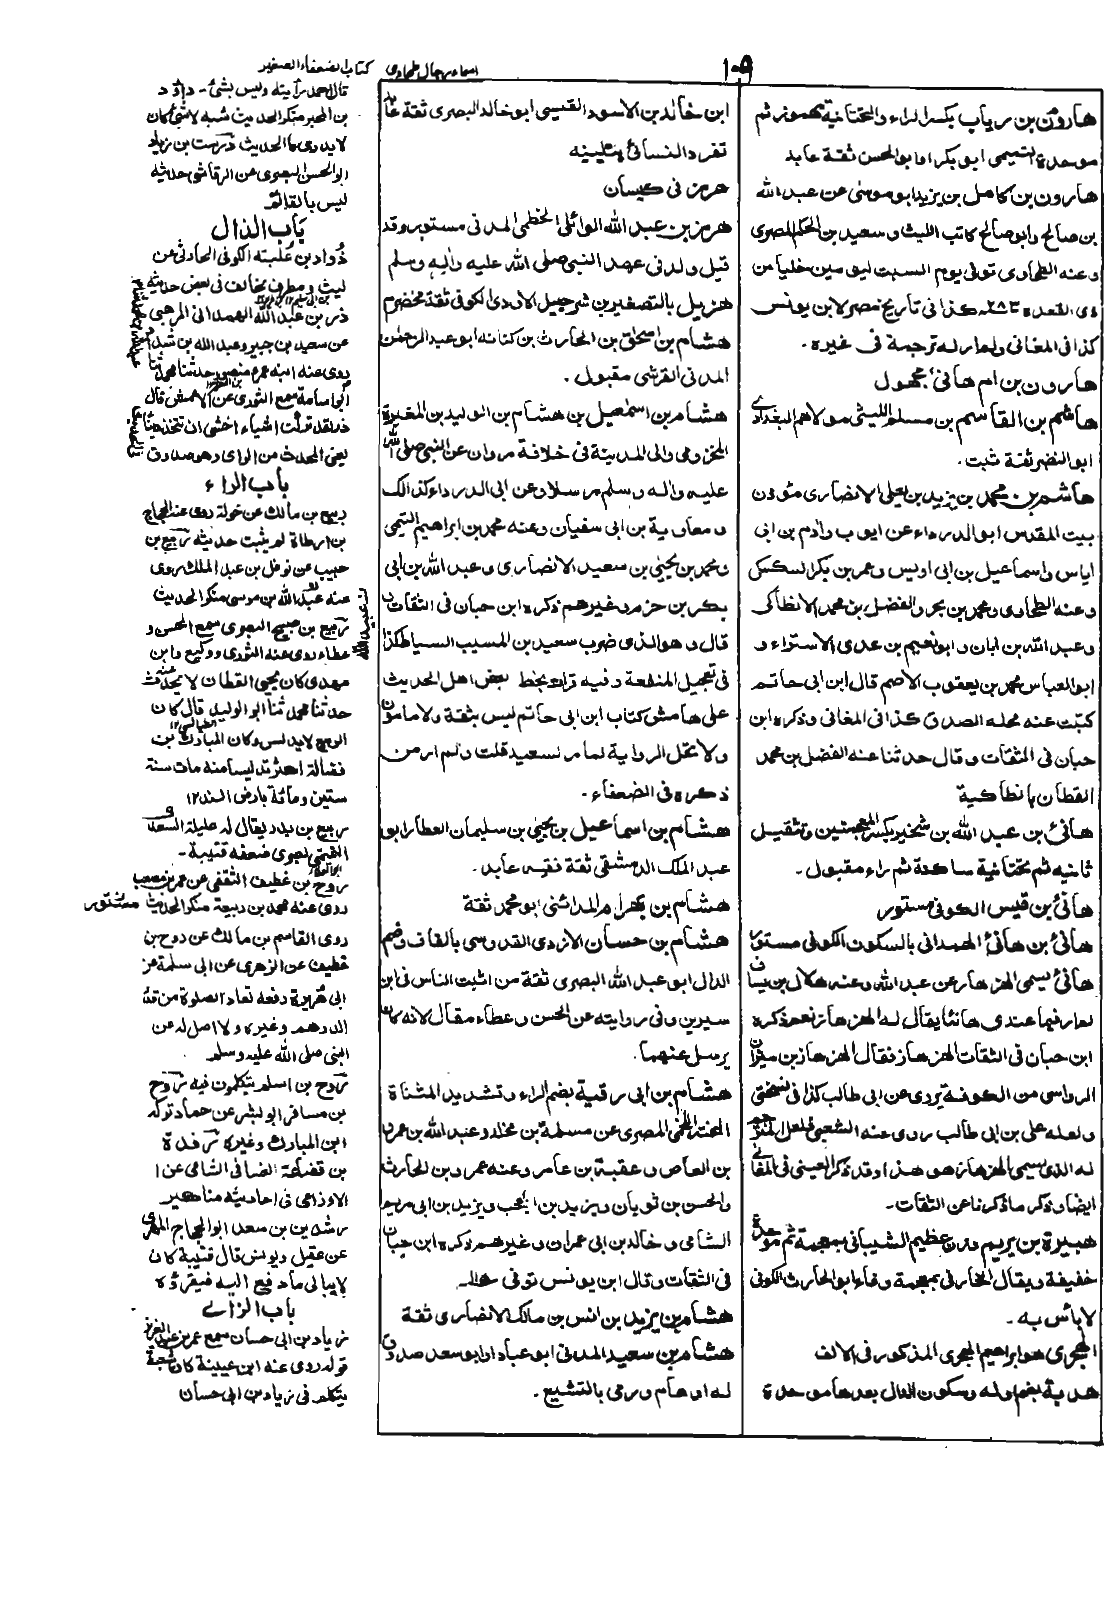 ١٠٩
اسماء رجال طحاوى
كتاب الضعفاء الصغير
هارون بن رياب بكسر الراء والتحتانية مهموز ثم
موحدة التميمى ابو بكر او ابو الحسن ثقة عابد
هارون بن كامل بن يزيد ابو موسى عن عبد الله
بن صالح وابو صالح كاتب الليث وسعيد بن الحكم المصرى
وعنه الطحاوى توفى يوم السبت ليومين خليا من
ذى القعدة ٢٨٣ـ كذا فى تاريخ مصر لابن يونس
كذا فى المغانى ولم ار له ترجمة فى غيره۔
هارون بن ام هانئ مجهول
هاشم بن القاسم بن مسلم الليثى مولاهم البغدادى
ابو النضر ثقة ثبت۔
هاشم بن محمد بن يزيد بن يعلى الانصارى مؤذن
بيت المقدس ابو الدرداء عن ايوب وادم بن ابى
اياس واسماعيل بن ابى اويس وعمر بن بكر السكسكى
وعنه الطحاوى ومحمد بن بحر والفضل بن محمد الانطاكى
وعبد الله بن ابان وابو نعيم بن عدى الاستراء و
ابو العباس محمد بن يعقوب الاصم قال ابن ابى حاتم
كتبت عنه محله الصدق كذا فى المغانى وذكره ابن
حبان فى الثقات وقال حدثنا عنه الفضل بن محمد
القطان بانطاكية
هانئ بن عبد الله بن شخير بكسر المعجمتين وتثقيل
ثانيه ثم تحتانية ساكنة ثم راء مقبول۔
هانئ بن قيس الكوفى مستور
هانئ بن هانئ الهمدانى بالسكون الكوفى مستور
هانئ يسمى الهزهاز عن عبد الله وعنه هلال بن يساف
لم ار فيما عندى هانئا يقال له الهزهاز نعم ذكره
ابن حبان فى الثقات الهزهاز فقال الهزهاز بن ميزان
الرواسى من الكوفة يروى عن ابى طالب كذا فى نسختى
ولعله على بن ابى طالب روى عنه الشعبى فلعل المترجم
له الذى يسمى الهزهاز هو هذا وقد ذكر العينى فى المغانى
ايضا وذكر ما ذكرنا عن الثقات۔
هبيرة بن يريم وزن عظيم الشيبانى بمعجمة ثم موحدة
خفيفة ويقال الخارفى بمعجمة وفاء ابو الحارث الكوفى
لا باس به۔
الهجرى هو ابراهيم الهجرى المذكور فى الالف
هدبة بضم اوله وسكون الدال بعدها موحدة
ابن خالد بن الاسود القيسى ابو خالد البصرى ثقة عابد
تفرد النسائى بتليينه
هرمز فى كيسان
هرمز بن عبد الله الوائلى الخطمى المدنى مستور وقد
قيل ولد فى عهد النبى صلى الله عليه واله وسلم
هزيل بالتصغير بن شرحبيل الاودى الكوفى ثقة مخضرم
هشام بن اسحق بن الحارث بن كنانة ابو عبد الرحمن
المدنى القرشى مقبول۔
هشام بن اسمعيل بن هشام بن الوليد بن المغيرة
المخزومى والى المدينة فى خلافة مروان عن النبى صلى الله
عليه واله وسلم مرسلا وعن ابى الدرداء كذلك
ومعاوية بن ابى سفيان وعنه محمد بن ابراهيم التيمى
ومحمد بن يحيى بن سعيد الانصارى وعبد الله بن ابى
بكر بن حزم وغيرهم ذكره ابن حبان فى الثقات و
قال وهو الذى ضرب سعيد بن المسيب السياط كذا
فى تعجيل المنفعة وفيه قرات بخط بعض اهل الحديث
على هامش كتاب ابن ابى حاتم ليس بثقة ولا مامون
ولا تحل الرواية لما مر لسعيد قلت ولم ار من
ذكره فى الضعفاء۔
هشام بن اسماعيل بن يحيى بن سليمان العطار ابو
عبد الملك الدمشقى ثقة فقيه عابد۔
هشام بن بهرام المدائنى ابو محمد ثقة
هشام بن حسان الازدى القدوسى بالقاف وضم
الدال ابو عبد الله البصرى ثقة من اثبت الناس فى ابن
سيرين وفى روايته عن الحسن وعطاء مقال لانه كان
يرسل عنهما۔
هشام بن ابى رقية بضم الراء وتشديد المثناة
اللخمى المصرى عن مسلمة بن مخلد وعبد الله بن عمرو
بن العاص وعقبة بن عامر وعنه عمرو بن الحارث
والحسن بن ثوبان ويزيد بن ابى مريم
الشامى وخالد بن ابى عمران وغيرهم ذكره ابن حبان
فى الثقات وقال ابن يونس توفى
هشام بن يزيد بن انس بن مالك الانصارى ثقة
هشام بن سعيد المدنى ابو عباد او ابو سعد صدوق
له اوهام ورمى بالتشيع۔
قال احمد رأيته وليس بشئ۔ داؤد
بن المحبر منكر الحديث شبه لا شئ كان
لا يدرى ما الحديث درست بن زياد
ابو الحسن البصرى عن الرقاشى حديثه
ليس بالقائم
باب الذال
ذواد بن علبة الكوفى الحارثى عن
ليث ومطرف يخالف فى بعض حديثه
ذر بن عبد الله الهمدانى المرهبى
عن سعيد بن جبير وعبد الله بن شداد
روى عنه ابنه عمر منصور حدثنا محمد ثنا
ابو اسامة سمع الثورى عن الاعمش قال
ذر لقد قرأت اشياء اخشى ان تتخذ دينا
يعنى المحدث من الراى وهو صدوق
باب الراء
ربيع بن مالك عن خولة روى عنه الحجاج
بن ارطاة لم يثبت حديثه ربيع بن
حبيب عن نوفل بن عبد الملك روى
عنه عبد الله بن موسى منكر الحديث
ربيع بن صبيح البصرى سمع الحسن و
عطاء روى عنه الثورى ووكيع وابن
مهدى كان يحيى القطان لا يحدث عنه
حدثنا محمد ثنا ابو الوليد قال كان
الربيع لا يدلس وكان المبارك بن
فضالة اكثر تدليسا منه مات سنة
ستين ومائة بارض السند ١٢
ربيع بن بدر يقال له عليلة السعدى
التميمى بصرى ضعفه قتيبة۔
روح بن غطيف الثقفى عن عمر بن مصعب
روى عنه محمد بن ربيعة منكر الحديث
روى القاسم بن مالك عن روح بن
غطيف عن الزهرى عن ابى سلمة عن
ابى هريرة رفعه تعاد الصلوة من قدر
الدرهم وغيره ولا اصل له عن
النبى صلى الله عليه وسلم
روح بن اسلم يتكلمون فيه روح
بن مسافر ابو بشر عن حماد تركه
ابن المبارك وغيره رفدة
بن قضاعة الغسانى الشامى عن ا
لاوزاعى فى احاديثه مناكير
رشدين بن سعد ابو الحجاج المهرى
عن عقيل ويونس قال قتيبة كان
لا يبالى ما دفع اليه فيقرؤه
باب الزاے
زياد بن ابى حسان سمع عمر بن عبد العزيز
قوله روى عنه ابن عيينة كان شعبة
يتكلم فى زياد بن ابى حسان